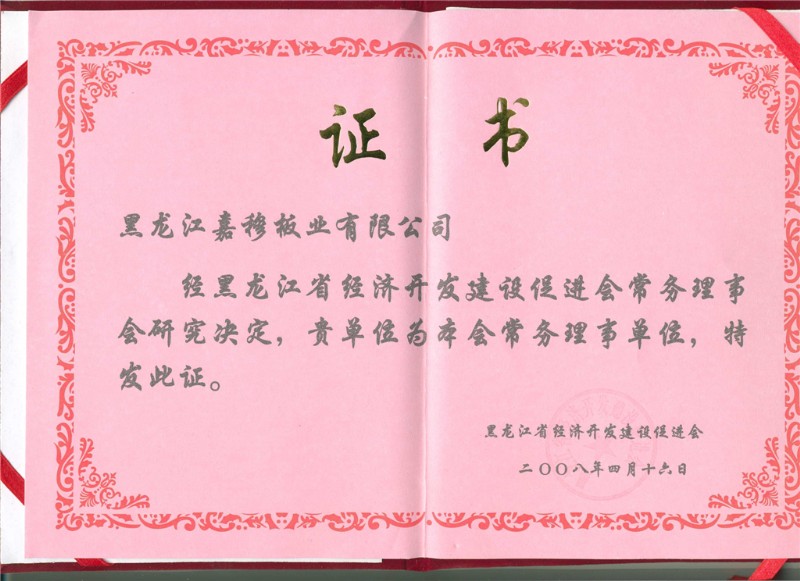 证书
黑龙江嘉穆板业有限公司
经黑龙江省经济开发建设促进会常务理事
会研究决定，贵单位为本会常务理事单位，特
发此证。
黑龙江省经济开发建设促进会
二〇〇八年四月十六日